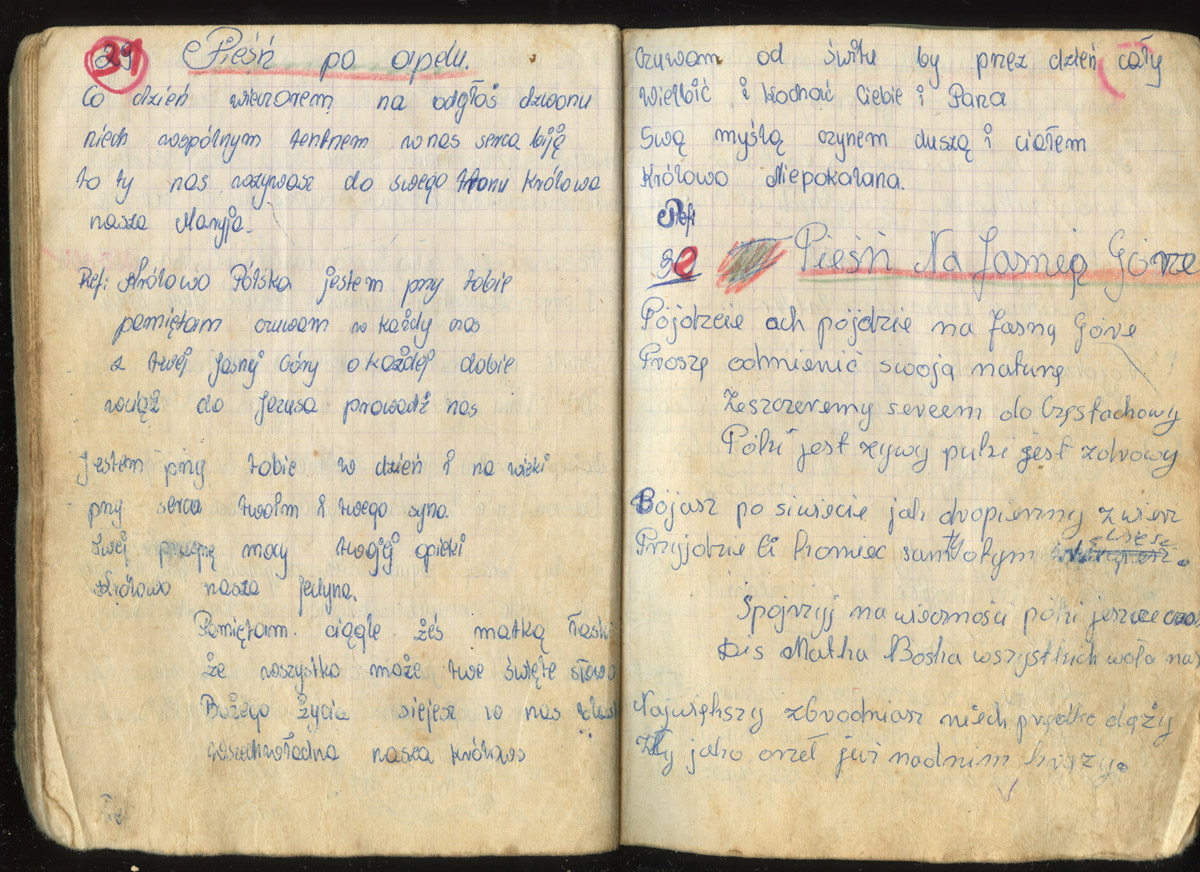 29 Pieśń po apelu.
Co dzień wieczorem na odgłoś dzwonu
niech wspólnym tentnem w nas serca biją
to ty nas wzywasz do swego tronu Królowa
nasza Maryja.
Ref: Królowo Polska jestem przy tobie
pamiętam czuwam w każdy czas
z twej Jasnej Góry o każdej dobie
wciąż do Jezusa prowadź nas
Jestem przy tobie w dzień i na wieki
przy serca twoim i twego syna.
twej mocy twojej opieki
Królowo nasza jedyna.
Pamiętam ciągle żeś matką łaski
że wszystko może twe święte słowo
Bożego życia siejesz w nas
wszechwładna nasza królowo
czuwam od świtu by przez dzień cały
Wielbić i kochać Ciebie i Pana
Swą myślą czynem duszą i ciałem
Królowo Niepokalana.
Ref
30 Pieśń Na Jasnię Górze
Pójdzcie ach pójdzie na Jasną Górże
Proszę odmienić swoją naturę
Zeszczeremy sercem do Częstachowy
Pólki jest żywy pulki jest zdrowy
Bójasz po siwiecie jak drapierzny zwierz
Przyjdzie Ci koniec sam o tym wiesz
Spojrzyj na wieczności pólki jeszcze czas
Dis Matka Boska wszystkich woła nas
Największy zbrodniasz niech prędko dąży
Zły jako orzeł już nadnim krąży.